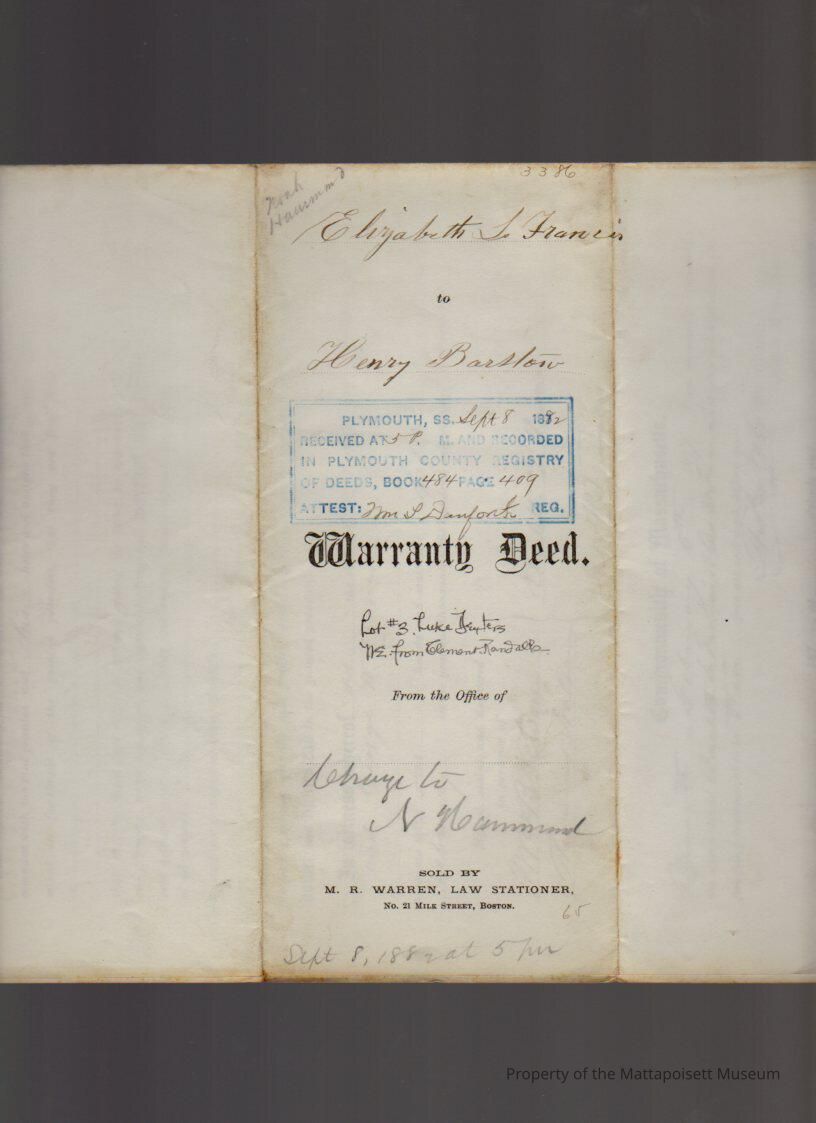 3386
Noah
Hammond
Elizabeth L Francis
to
Henry Barstow
PLYMOUTH, SS. Sept 8 1882
RECEIVED AT 5 P. M. AND RECORDED
IN PLYMOUTH COUNTY REGISTRY
OF DEEDS, BOOK 484 PAGE 409
ATTEST: Wm S Danforth REG.
Warranty Deed.
Lot #3. Luke Dexters
from Clement Randalls
From the Office of
Charge to
N Hammond
SOLD BY
M. R. WARREN, LAW STATIONER,
No. 21 MILK STREET, BOSTON.
65
Sept 8, 1882 at 5 pm
Property of the Mattapoisett Museum